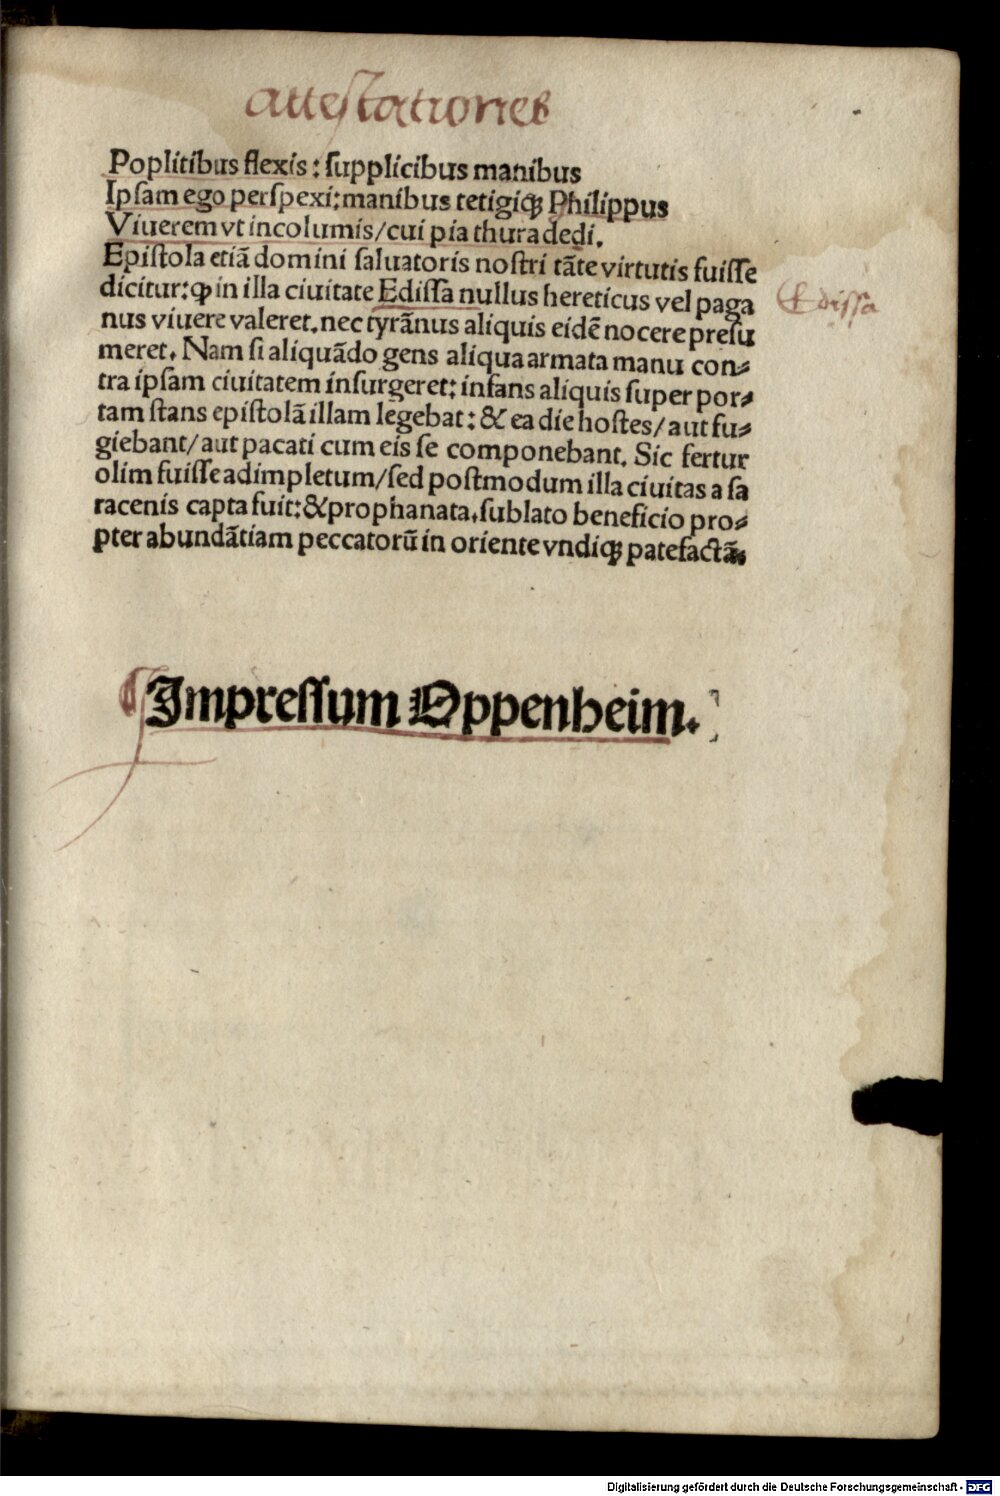 attestationes
Poplitibus flexis: ſupplicibus manibus
Ipſam ego perſpexi: manibus tetigiqꝫ Philippus
Viuerem vt incolumis/ cui pia thura dedi.
Epiſtola etiā domini ſaluatoris noſtri tāte virtutis fuiſſe
dicitur: ꝙ in illa ciuitate Ediſſa nullus hereticus vel paga
Ediſſa
nus viuere valeret. nec tyrānus aliquis eidē nocere preſu
meret. Nam ſi aliquādo gens aliqua armata manu con⸗
tra ipſam ciuitatem inſurgeret: infans aliquis ſuper por⸗
tam ſtans epiſtolā illam legebat: & ea die hoſtes/ aut fu⸗
giebant/ aut pacati cum eis ſe componebant. Sic fertur
olim fuiſſe adimpletum/ ſed poſtmodum illa ciuitas a ſa
racenis capta fuit: & prophanata. ſublato beneficio pro⸗
pter abundātiam peccatorū in oriente vndiqꝫ patefactā.
Impreſſum Oppenheim.
Digitalisierung gefördert durch die Deutsche Forschungsgemeinschaft - DFG